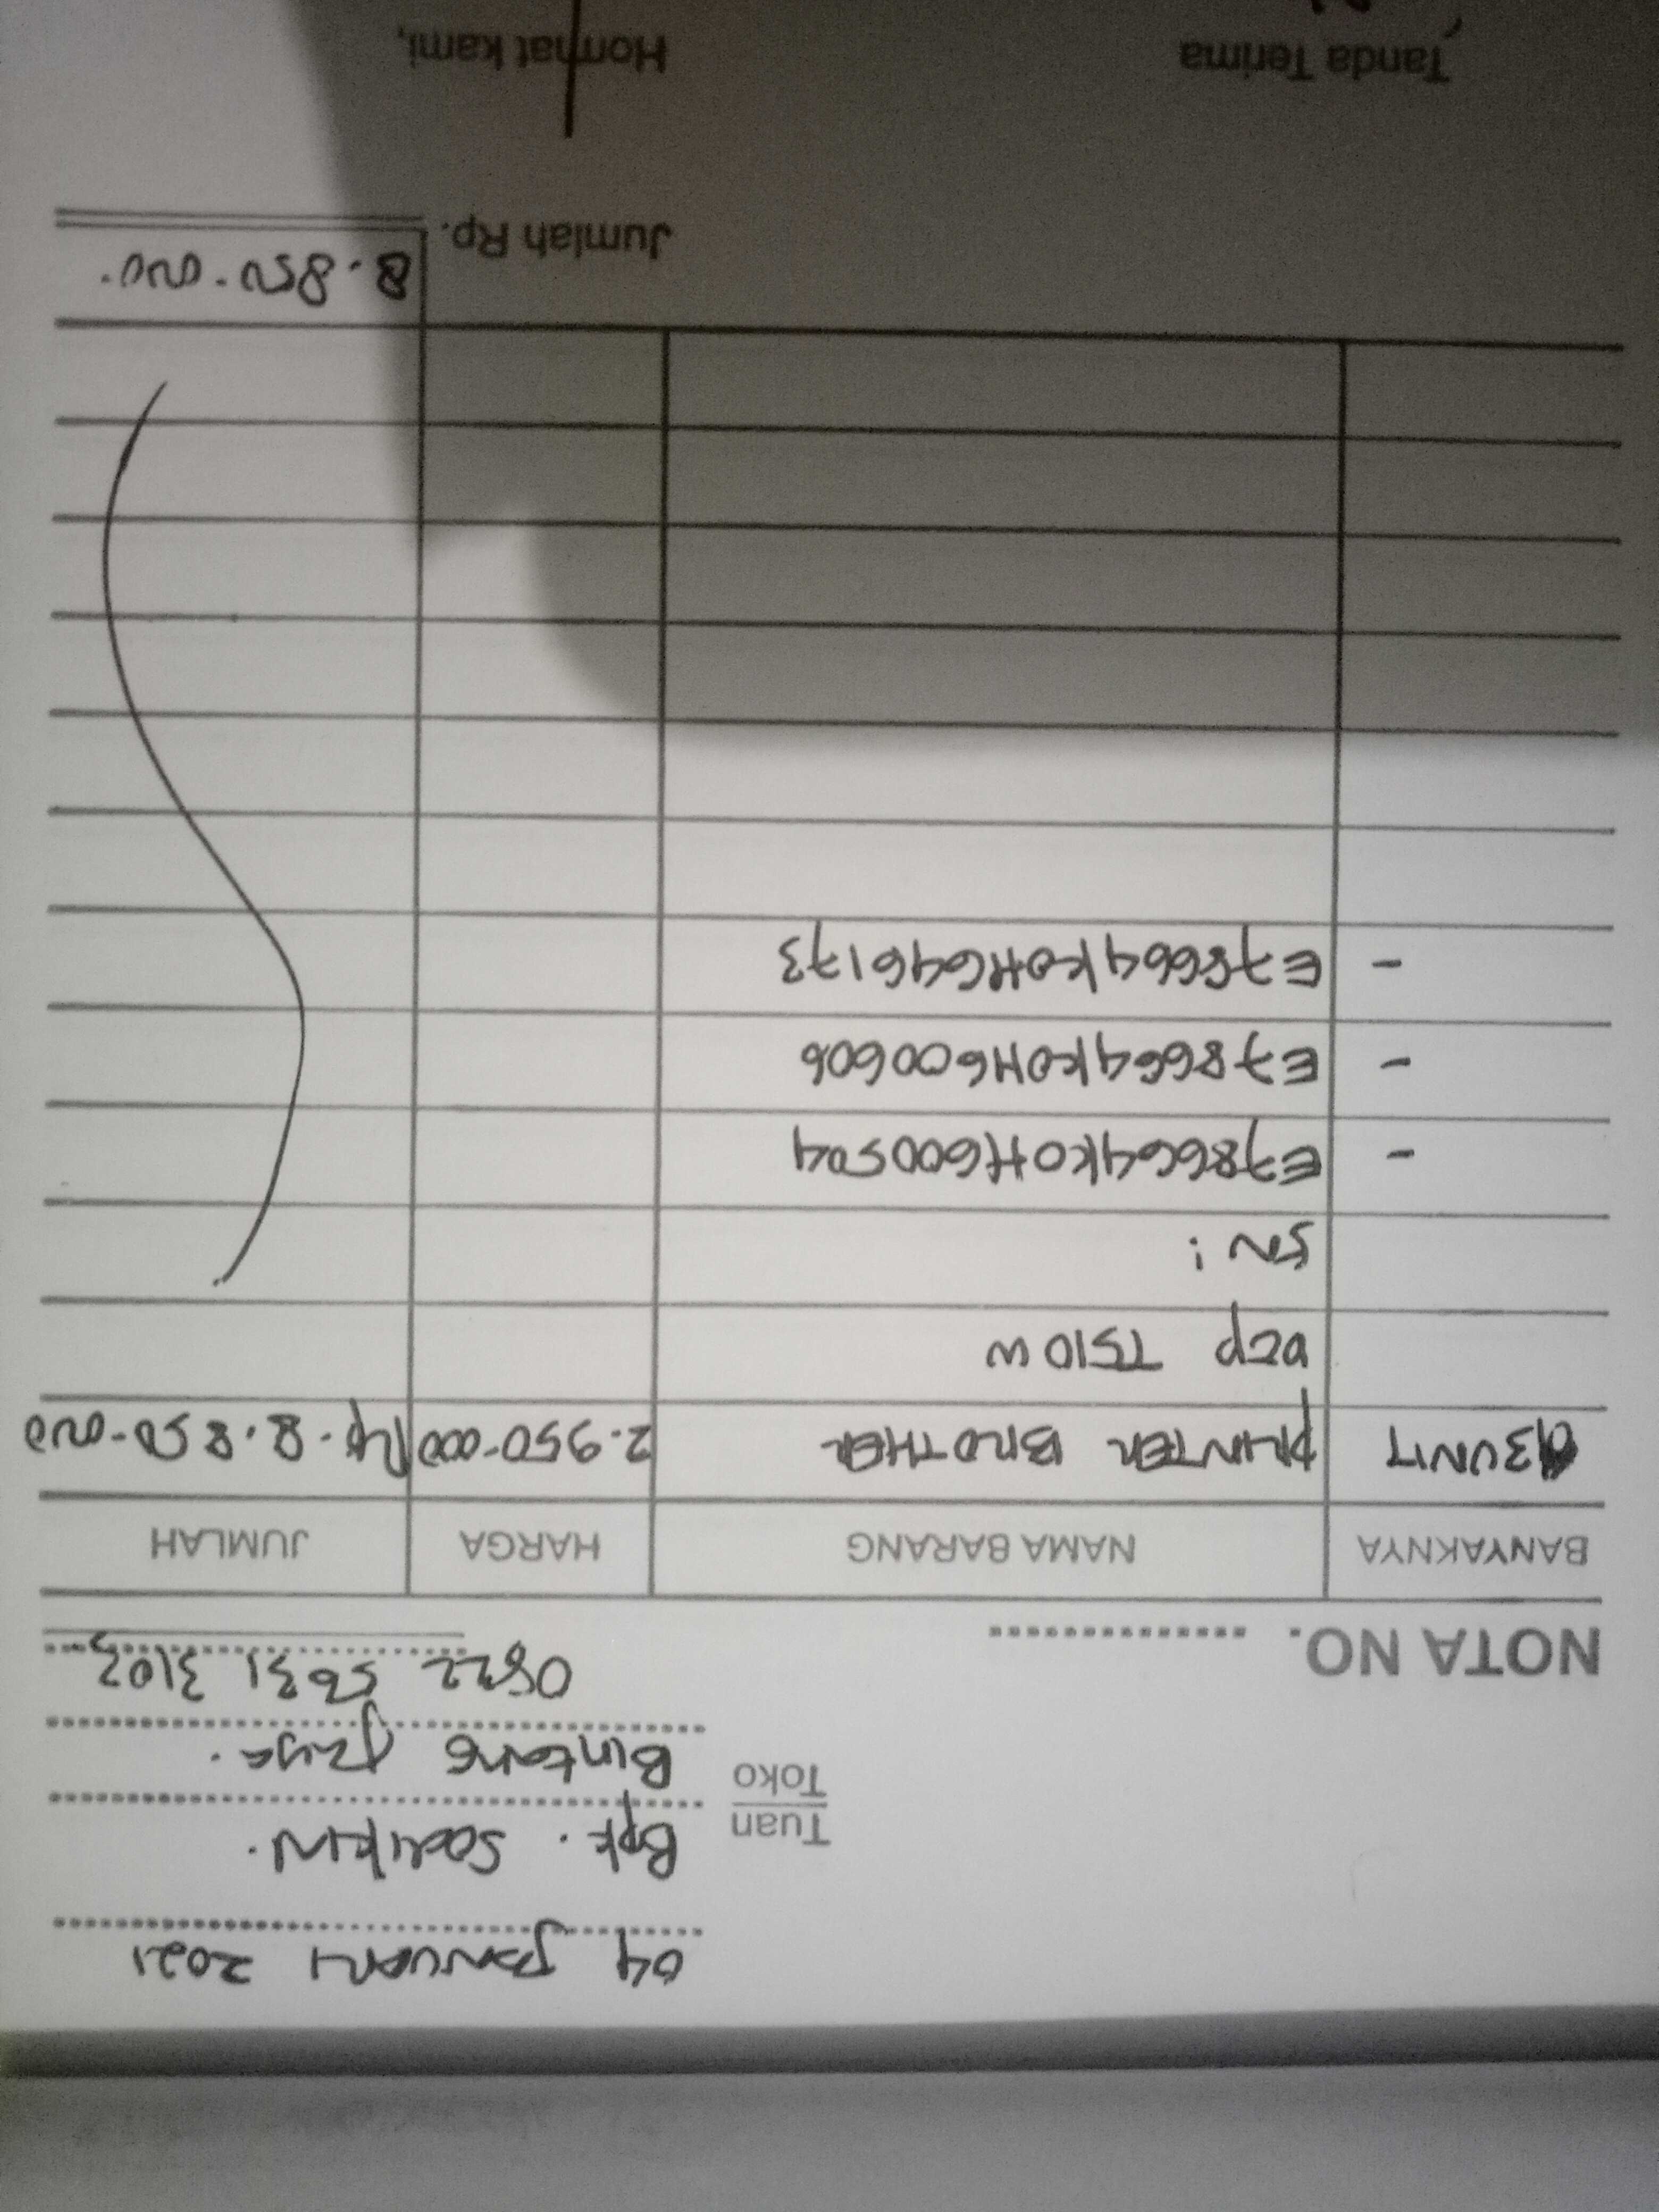 04 JANUARI 2021
Tuan
Toko
Bpk. SOLIKIN.
Bintang Jaya.
0822 5631 3103
NOTA NO.
BANYAKNYA NAMA BARANG HARGA JUMLAH
3 UNIT PRINTER BROTHER 2.950.000 Rp. 8.850.000
DCP T510W
SN :
- E78664K0H600504
- E78664K0H600606
- E78664K0H646173
Jumlah Rp. 8.850.000.
Tanda Terima Hormat kami,